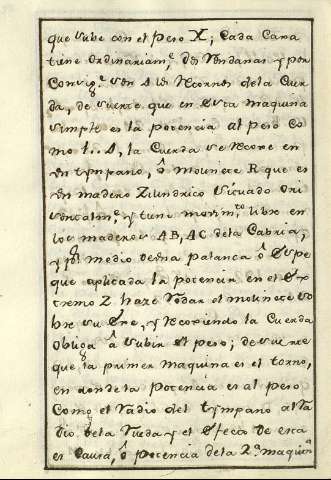 que sube con el peso X; Cada Cara
tiene ordinariam.e dos Rendanas y por
Consig.te son 4 los Recornes dela Cuer
da, de suerte que en esta maquina
simple es la potencia al peso Co
mo 1..4, la Cuerda se Recoxe en
un tympano, ô moliniere R que es
un madero Zilindrico situado ori
sontalm.e y tiene movim.to libre en
los maderos AB, AC dela Cabria,
y p.r medio de una palanca ô Espe
que aplicada la potencia en el Ex
tremo Z haze Rodar el molinete so
bre su Exe, y Recoxiendo la Cuerda
obliga â subir el peso; de suerte
que la primer maquina es el torno,
en donde la potencia es al peso
Como el Radio del tympano al Ra
dio de la Rueda y el Efecto de esta
es Causa, ô potencia dela 2.a maquin.a